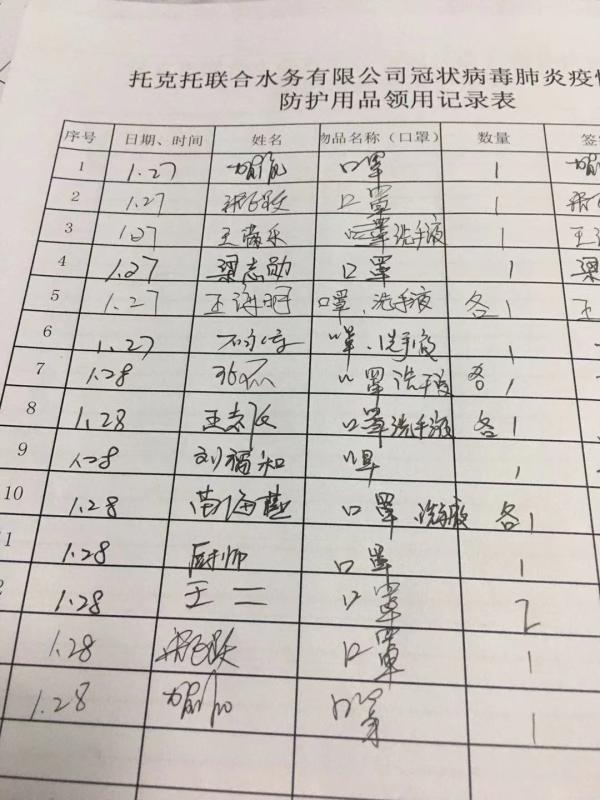 托克托联合水务有限公司冠状病毒肺炎疫
防护用品领用记录表
序号 日期、时间 姓名 物品名称（口罩） 数量
1 1.27 口罩 1
2 1.27 口罩 1
3 1.27 口罩洗手液 1
4 1.27 梁志勋 口罩 1
5 1.27 口罩、洗手液 各1
6 1.27 口罩、洗手液 1
7 1.28 口罩洗手液 各1
8 1.28 口罩洗手液 各1
9 1.28 刘福和 口罩 1
10 1.28 口罩、洗手液 各1
1 1.28 厨师 口罩 1
2 1.28 王二 口罩 2
1.28 口罩 1
1.28 口罩 1